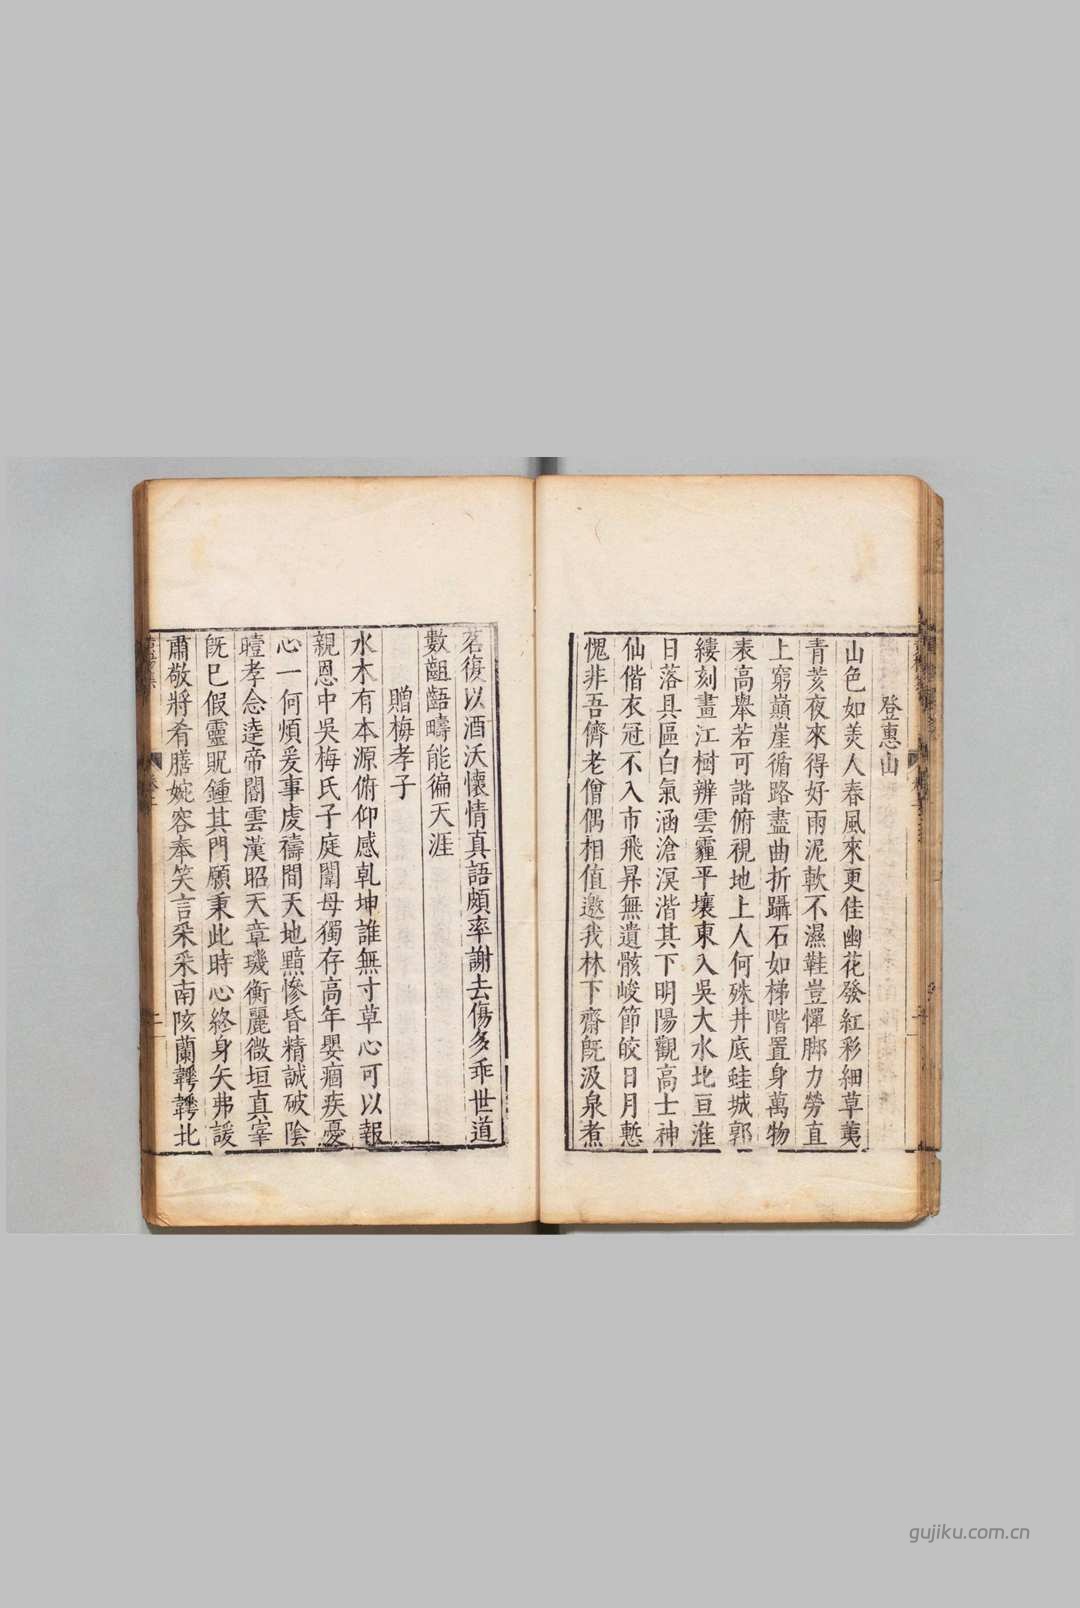 登惠山
山色如美人春風來更佳幽花發紅彩細草荑
青荄夜來得好雨泥軟不濕鞋豈憚腳力勞直
上窮巔崖循路盡曲折躡石如梯階置身萬物
表高舉若可諧俯視地上人何殊井底蛙城郭
縷刻畫江樹辨雲霾平壤東入吳大水北亘淮
日落具區白氣涵滄溟湝其下明陽觀高士神
仙偕衣冠不入市飛昇無遺骸峻節皎日月慙
愧非吾儕老僧偶相值邀我林下齋旣汲泉煮
茗復以酒沃懷情真語頗率謝去傷多乖世道
數齟齬疇能徧天涯
贈梅孝子
水木有本源俯仰感乾坤誰無寸草心可以報
親恩中吳梅氏子庭闈母獨存高年嬰痼疾憂
心一何煩爰事虔禱間天地黯慘昏精誠破陰
曀孝念達帝閽雲漢昭天章璣衡麗微垣真宰
旣巳假靈貺鍾其門願秉此時心終身矢弗諼
肅敬將肴膳婉容奉笑言采采南陔蘭韡韡北
gujiku.com.cn